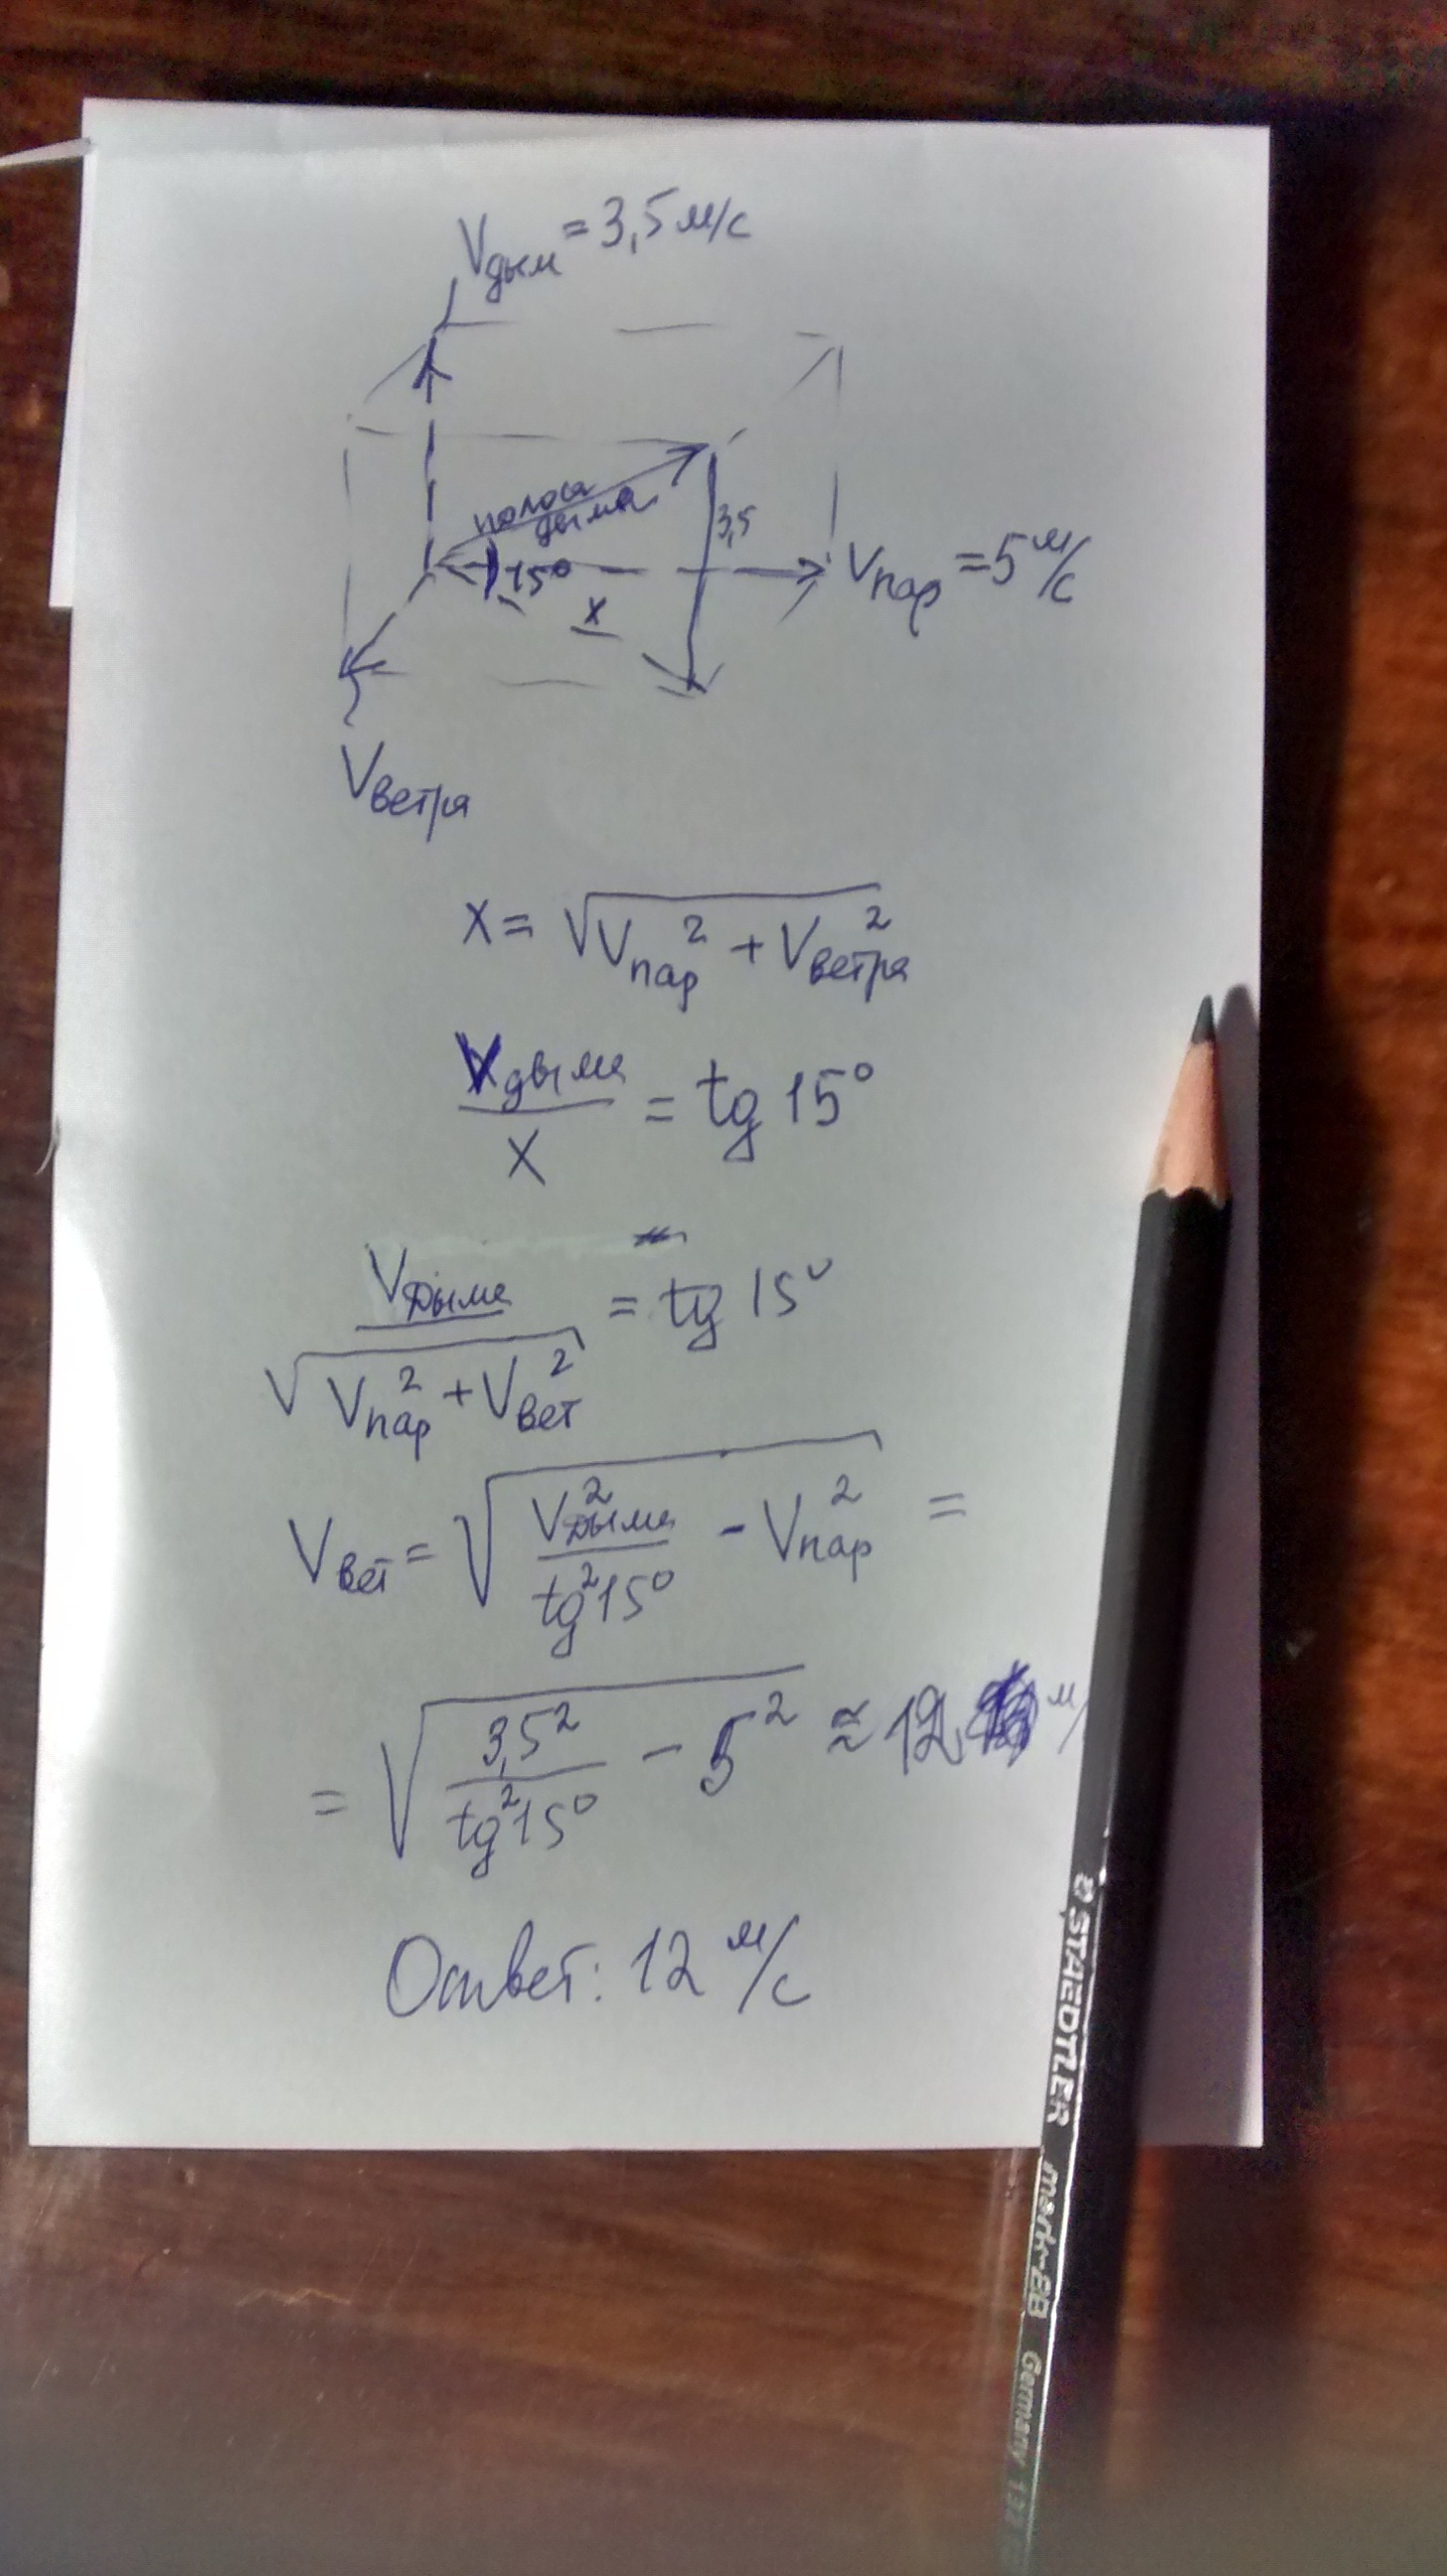 Vдым = 3,5 м/с
полоса
дыма
3,5
15°
Vпар = 5 м/с
x
Vветра
x = √(Vпар² + Vветра²)
Vдыма / x = tg 15°
Vдыма / √(Vпар² + Vвет²) = tg 15°
Vвет = √(V²дыма / tg²15° - Vпар²) =
= √(3,5² / tg²15° - 5²) ≈ 12 м/
Ответ: 12 м/с
STAEDTLER mark-EB Germany